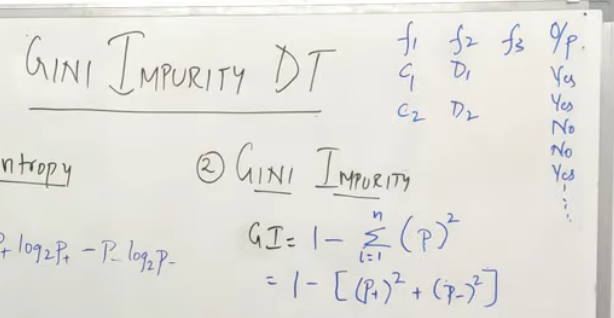 GINI IMPURITY DT
f1 f2 f3 O/P.
C1 D1 Yes
C2 D2 Yes
No
No
Yes
ntropy
② GINI IMPURITY
P+ log2P+ - P- log2P-
GI = 1 - n∑i=1 (p)²
= 1 - [(P+)² + (P-)²]